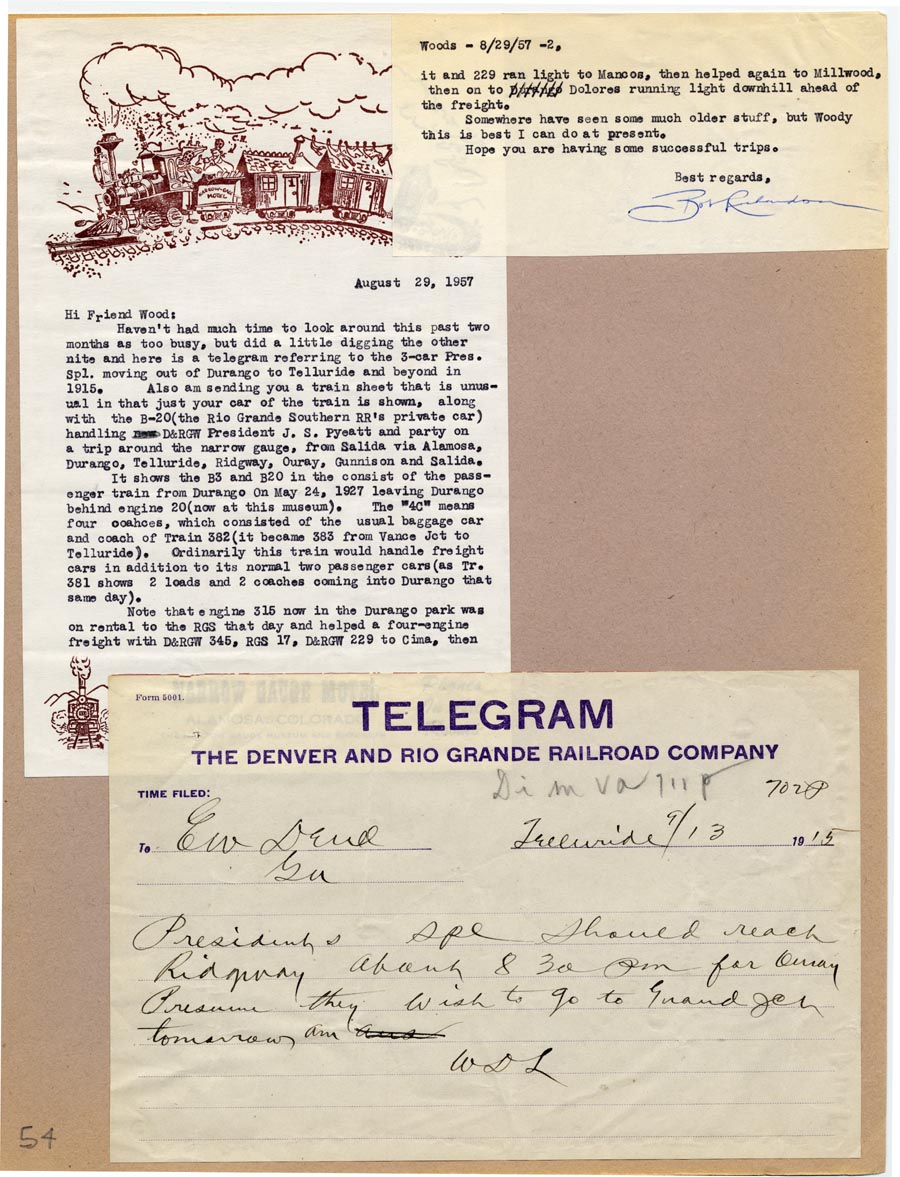 August 29, 1957
Hi Friend Wood:
Haven't had much time to look around this past two
months as too busy, but did a little digging the other
nite and here is a telegram referring to the 3-car Pres.
Spl. moving out of Durango to Telluride and beyond in
1915. Also am sending you a train sheet that is unus-
ual in that just your car of the train is shown, along
with the B-20(the Rio Grande Southern RR's private car)
handling D&RGW President J. S. Pyeatt and party on
a trip around the narrow gauge, from Salida via Alamosa,
Durango, Telluride, Ridgway, Ouray, Gunnison and Salida.
It shows the B3 and B20 in the consist of the pass-
enger train from Durango On May 24, 1927 leaving Durango
behind engine 20(now at this museum). The "4C" means
four coahces, which consisted of the usual baggage car
and coach of Train 382(it became 383 from Vance Jct to
Telluride). Ordinarily this train would handle freight
cars in addition to its normal two passenger cars(as Tr.
381 shows 2 loads and 2 coaches coming into Durango that
same day).
Note that engine 315 now in the Durango park was
on rental to the RGS that day and helped a four-engine
freight with D&RGW 345, RGS 17, D&RGW 229 to Cima, then
Woods - 8/29/57 -2,
it and 229 ran light to Mancos, then helped again to Millwood,
then on to Dolores running light downhill ahead of
the freight.
Somewhere have seen some much older stuff, but Woody
this is best I can do at present.
Hope you are having some successful trips.
Best regards,
NARROW-GAUGE
MOTEL
1
2
Form 5001.
TELEGRAM
THE DENVER AND RIO GRANDE RAILROAD COMPANY
TIME FILED:
702P
To
Telluride 9/13 1915
Presidents spl should reach
Ridgway about 8 30 pm for Ouray
Presume they wish to go to Grand Jct
tomorrow am
WDL
54